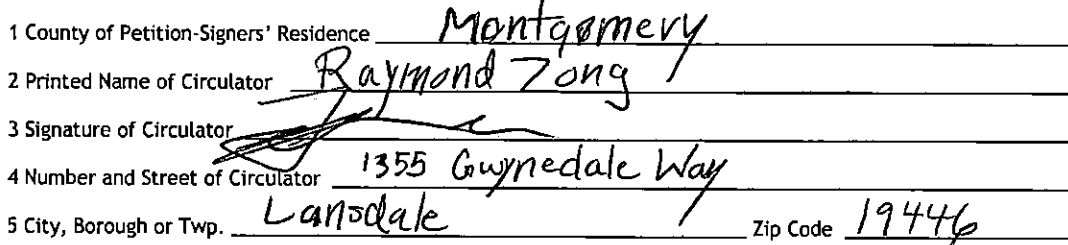 1 County of Petition-Signers' Residence Montgomery
2 Printed Name of Circulator Raymond Zong
3 Signature of Circulator
4 Number and Street of Circulator 1355 Gwynedale Way
5 City, Borough or Twp. Lansdale Zip Code 19446